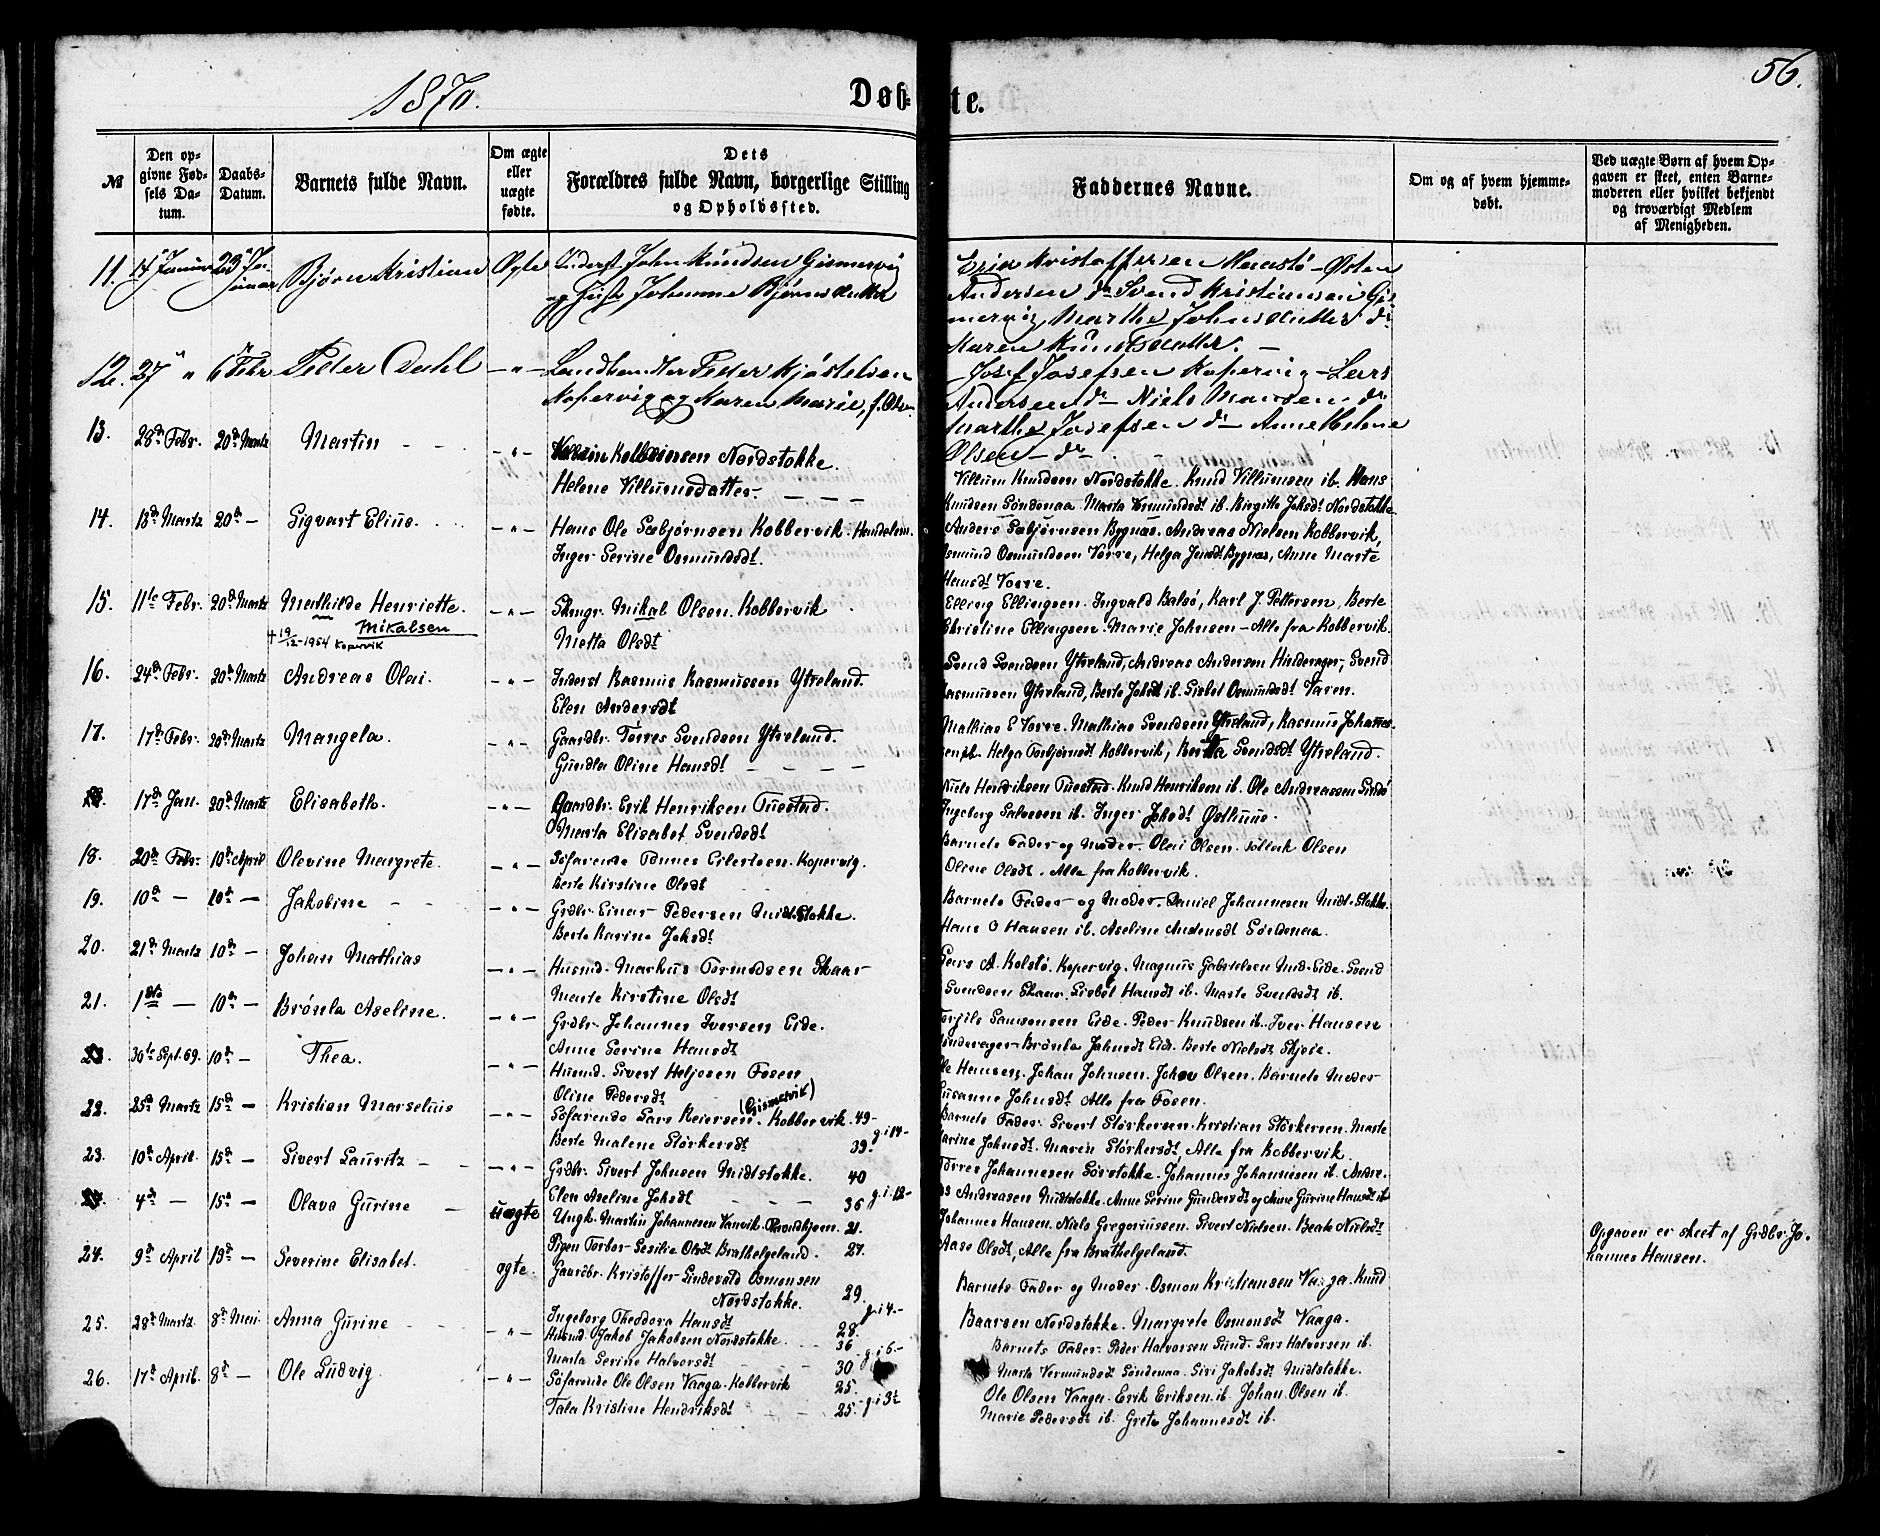 1870.
Døb-
te.
56.
№
Den op-
givne Fød-
sels Da-
tum.
Daabs-
Datum.
Barnets fulde Navn.
Om ægte
eller
uægte
fødte.
Dets
Forældres fulde Navn, borgerlige Stilling
og Opholdssted.
Faddernes Navne.
Om og af hvem hjemme-
døbt.
Ved uægte Børn af hvem Op-
gaven er skeet, enten Barne-
moderen eller hvilket bekjendt
og troværdigt Medlem
af Menigheden.
11. 14 Januar 23 Ja-
nuar Bjørn Kristian Ægte Inderst John Knudsen Gismervig
og Hust. Johanne Bjørnsdatter
Erik Kristoffersen Mannstø - Østen
Andersen do Svend Kristiansen Gis
mervig, Marthe Johnsdatter do
Maren Knudsdatter. —
12. 27 " 6 Febr Peter Dahl — " — Landhandler Peter Kjøstelsen
Kopervig og Karen Marie, f. Olsen
Josef Josefsen Kopervig - Lars
Andersen do Niels Monsen do
Marthe Josefsen do Anne Helene
Olsen do
13. 28d Febr. 20d Martz Martin — " — Kolbeinsen Nordstokke.
Helene Villumsdatter.
Villum Knudsen Nordstokke. Knud Villumsen ib. Hans
Knudsen Søndenaa. Marta Vermundsdt ib. Birgith Johsdt Nordstokke
14. 18d Martz 20d — Sigvart Elius. — " — Hans Ole Sæbjørnsen Kobbervik. Handelsm.
Inger Serine Osmundsdt.
Anders Sæbjørnsen Bygnæs. Andreas Nielsen Kobbervik,
Osmund Osmundsen Vorre, Helga Jensdt Bygnæs, Anne Marte
Hansdt Vorre.
15. 11te Febr. 20d Martz Mathilde Henriette. — " — Skmgr. Mikal Olsen. Kobbervik
Mikalsen
† 19/12-1954 Kopervik
Metta Olsdt
Elling Ellingsen. Ingvald Balsø, Karl J. Pettersen, Berte
Christine Ellingsen. Marie Johnsen - Alle fra Kobbervik.
16. 24d Febr. 20d Martz Andreas Olai. — " — Inderst Rasmus Rasmussen Ytreland.
Elen Andersdt
Svend Svendsen Ytreland, Andreas Andersen Hinderager, Svend
Rasmussen Ytreland, Berte Johsdt ib. Sisbet Osmundsdt Varen.
17. 17d Febr. 20d Martz Mangela. — " — Gaardbr. Tørres Svendsen Ytreland.
Gundla Oline Hansdt
Mathias E Vorre. Mathias Svendsen Ytreland, Rasmus Johannes-
sen ib. Helga Torbjørnsdt Kobbervik, Berta Svendsdt Ytreland
17d Jan. 20d Martz Elisabeth. — " — Gaardbr. Erik Henriksen Tuestad.
Marta Elisabet Svendsdt
Niels Henriksen Tuestad. Knud Henriksen ib. Ole Andreassen Sundø
Ingeborg Salvesen ib. Inger Johsdt Østhuus.
18. 20d Febr. 10d April Olevine Margrete. — " — Søfarende Tønnes Eilertsen. Kopervig.
Berte Kirstine Olsdt
Barnets Fader og Moder. Olai Olsen. Olsen
Oline Olsdt. Alle fra Kobbervik.
19. 10d — 10d — Jakobine — " — Grdbr. Einar Pedersen Midt-Stokke.
Berte Karine Johsdt
Barnets Fader og Moder. Daniel Johannesen Midt-Stokke.
Hans O Hansen ib. Aseline Andersdt Søndenaa.
20. 21d Martz 10d — Johan Mathias — " — Husmd. Markus Tormodsen Skaar
Marte Kirstine Olsdt
Lars A. Kolstø. Kopervig. Magnus Gabrielsen Mid-Eide. Svend
Svendsen Skaar. Sisbet Hansdt ib. Marte Svendsdt ib.
21. 1ste — 10d — Brønla Aseline. — " — Grdbr. Johannes Iversen Eide.
Anne Serine Hansdt
Torgils Samsonsen Eide. Peder Knudsen ib. Iver Hansen
Hinderager. Brønla Johnsdt Eide. Berte Nielsdt Skjøle.
30te Sept. 69. 10d — Thea. — " — Husmd. Sivert Heljesen Fosen
Oline Pedersdt
Ole Hansen. Johan Johnsen. Johan Olsen. Barnets Moder
Susanne Johnsdt Alle fra Fosen.
22. 25d Martz 15d — Kristian Marselius — " — Søfarende Lars Reiersen. (Gismervik) Kobbervik. 49-
Berte Malene Størkersdt 39. g.i 14-
Barnets Fader. Sivert Størkersen. Kristian Størkersen. Marte
Karine Johnsdt. Maren Størkersdt, Alle fra Kobbervik.
23. 10d April. 15d — Sivert Lauritz — " — Grdbr. Sivert Johnsen Midtstokke. 40
Elen Aseline Johsdt 36 g.i.12-
Tørres Johannesen Sørstokke. Johannes Johannesen ib. Andre-
as Andreasen Midtstokke. Anne Serine Gundersdt og Anne Gurine Hansdt ib
4d — 15d — Olava Gurine uægte Ungk. Martin Johannesen Vanvik. 21.
Pigen Torbor Sesilie Olsdt Brathelgeland. 27.
Johannes Hansen. Niels Gregoriussen. Sivert Nielsen. Beate Nielsdt
Aase Olsdt, Alle fra Brathelgeland.
Opgaven er skeet af Grdbr. Jo-
hannes Hansen.
24. 9d April 19d — Severine Elisabet. ægte. Gaardbr. Kristoffer Sindevald Osmonsen
Nordstokke. 29.
Ingeborg Theodora Hansdt 28. g.i 4.-
Barnets Fader og Moder. Osmon Kristiansen Vaaga. Knud
Baarsen Nordstokke. Margrete Osmonsdt Vaaga.
25. 28d Martz. 8d Mai. Anna Gurine — " — Husmd. Jakob Jakobsen Nordstokke. 36
Marta Serine Halvorsdt 30 g.i 6.-
Barnets Fader. Peder Halvorsen Sund. Lars Halvorsen ib.
Marta Vermundsdt Søndenaa. Siri Jakobsdt Midtstokke.
26. 17d April. 8d — Ole Ludvig — " — Søfarende Ole Olsen Vaaga. Kobbervik 25.
Tala Kristine Hendriksdt 25. g.i 3t
Ole Olsen Vaaga. Erik Eriksen ib. Johan Olsen ib.
Marie Pedersdt ib. Greta Johannesdt ib.